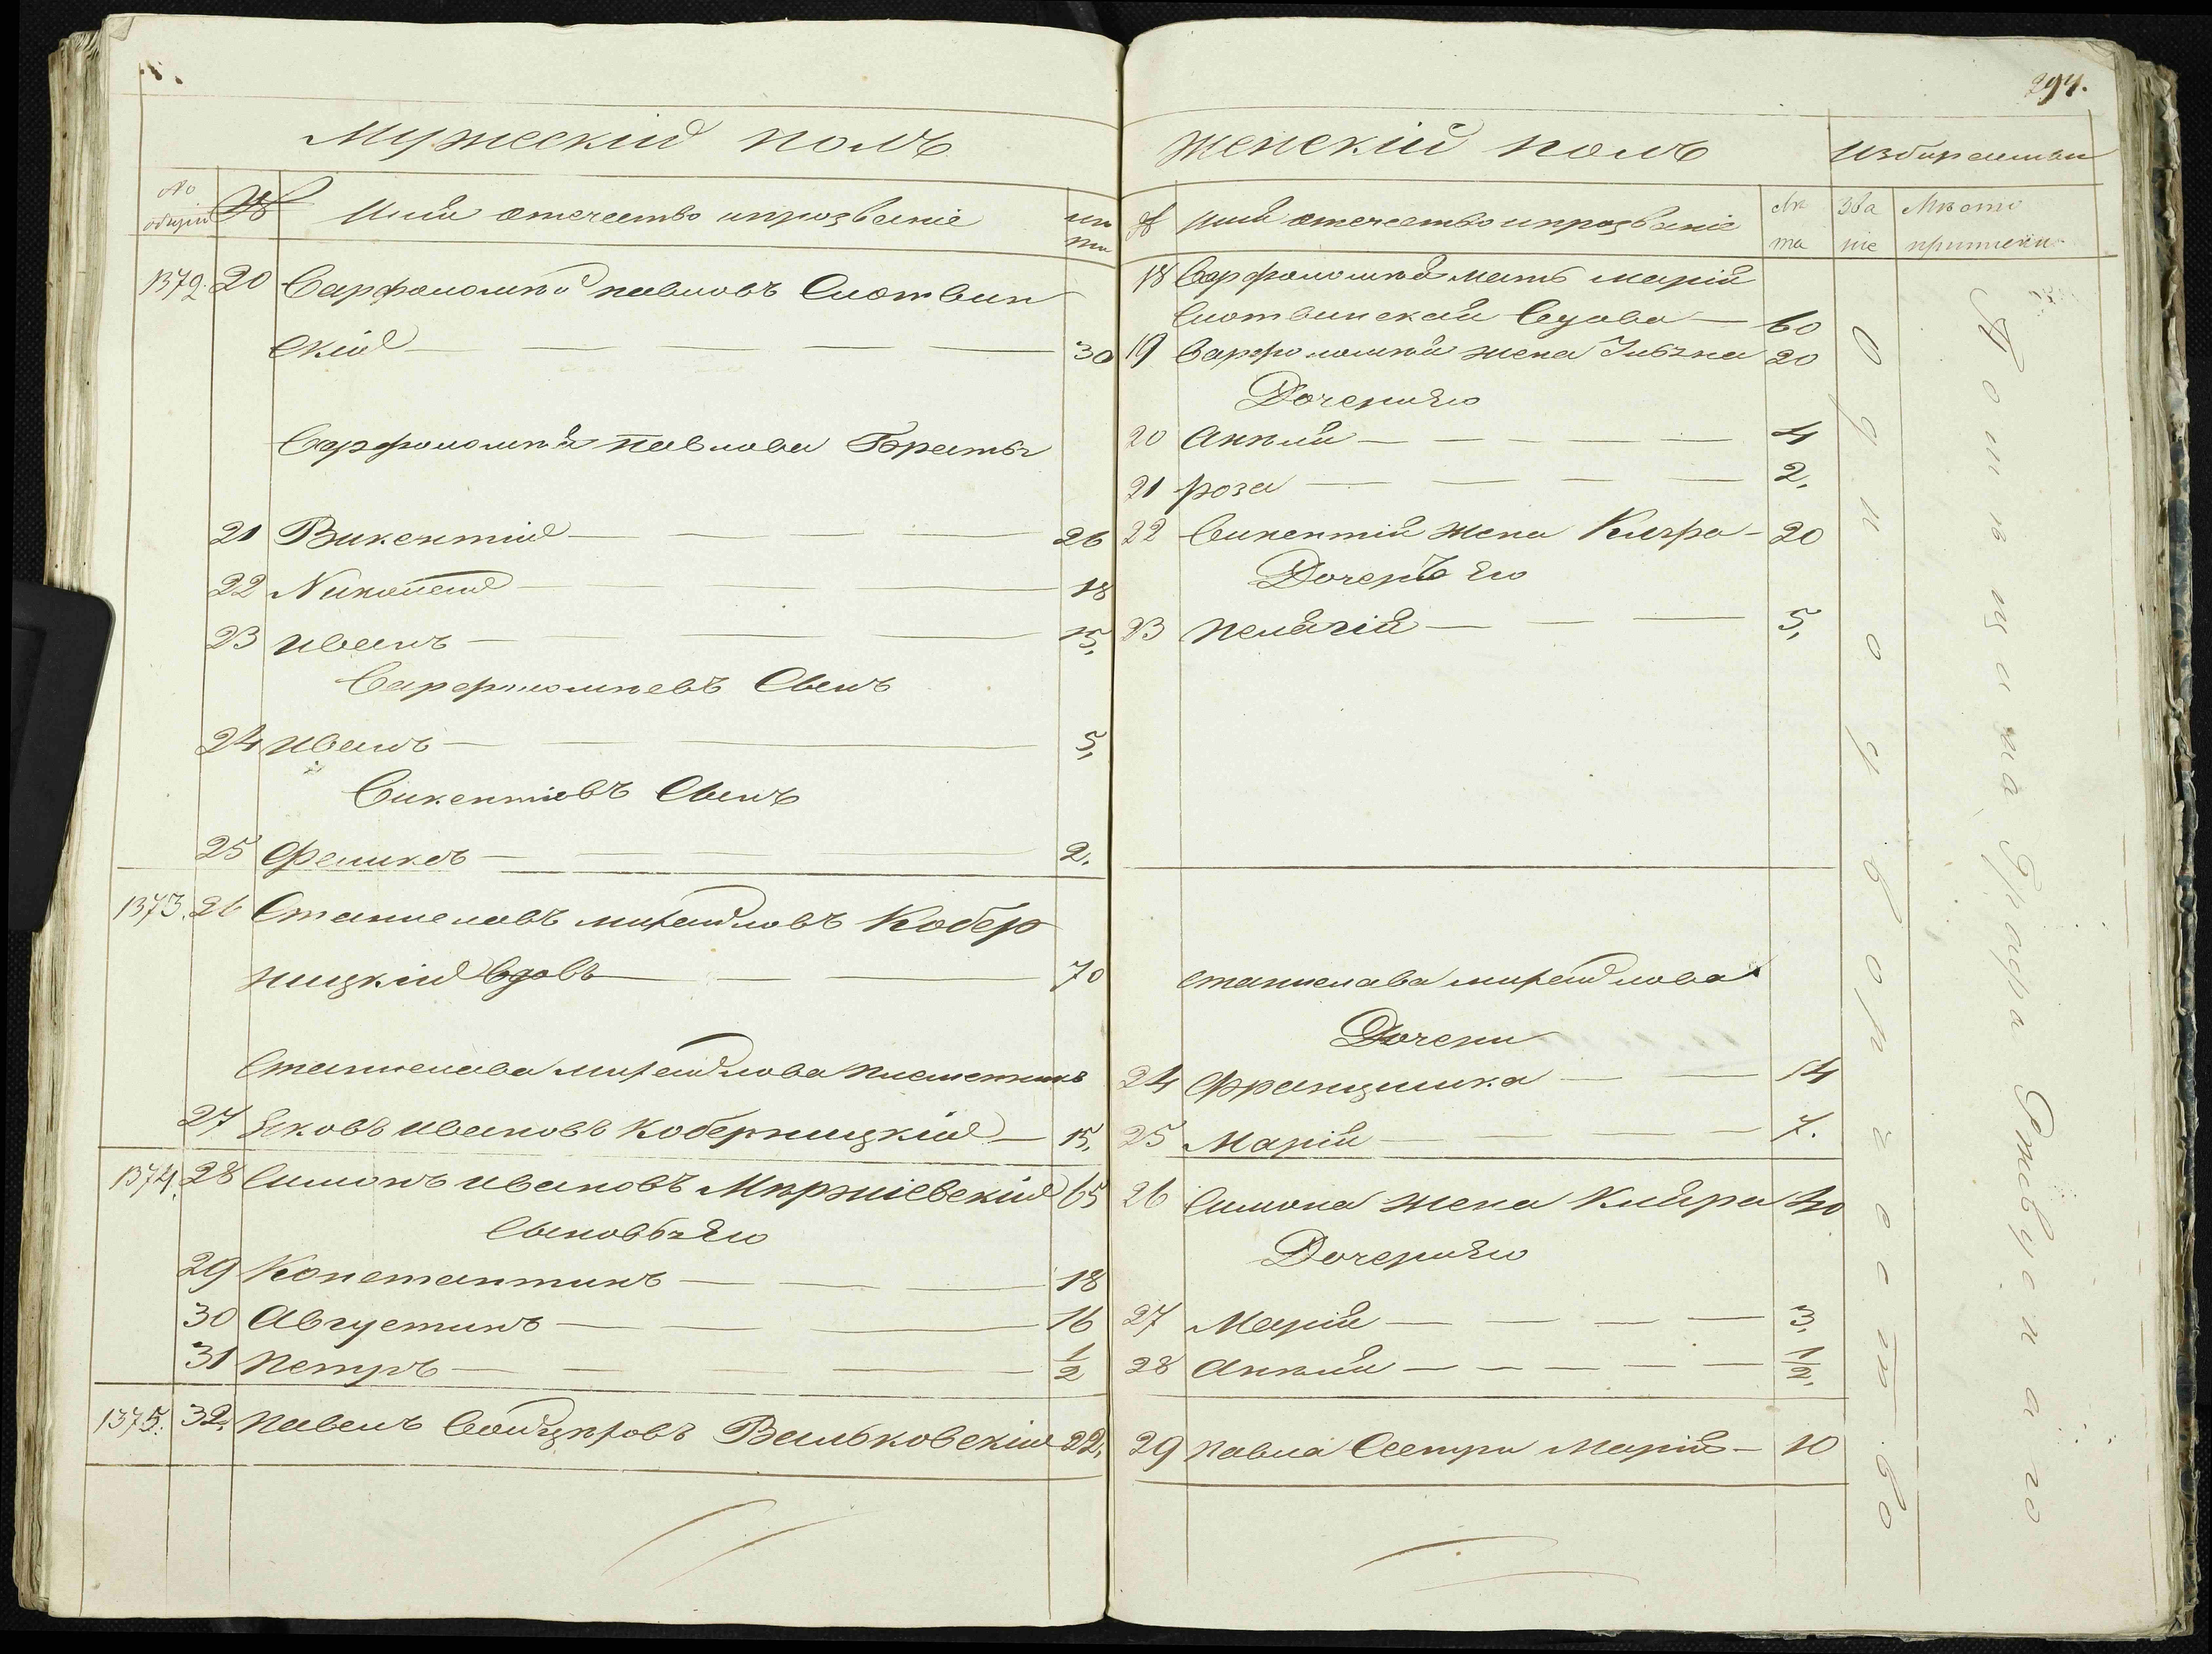 294.
Мужескій полъ
№ общій
№
Имя отечество ипрозваніе
лѣта
1372. 20 Варфоломѣй павловъ Слотвин
скій 30
Варфоломѣя павлова Братья
21 Викентій 26
22
18
23 иванъ 15,
Варфоломѣевъ Сынъ
24 иванъ 5,
Викентіевъ Сынъ
25 Феликсъ 2.
1373. 26 Станиславъ михайловъ Кобер
ницкій вдовъ 70
Станислава михайлова племенникъ
27 Яковъ ивановъ коберницкій 15,
1374. 28 Симонъ ивановъ Мѣржіевскій 65
Сыновья Его
29 Константинъ 18
30 Августинъ 16
31 петръ 1/2
1375. 32. павелъ Войцѣховъ Вальковскій 22,
Женскій полъ
избирательн
№
имя отечество ипрозваніе
лѣ та
Зва ніе
Мѣсто приписки
18 Варфоломѣя мать марія
Слотвинская Вдова 60
19 Варфоломѣя жена 20
Дочери Его
20 Анѣля 4
21 роза 2,
22 Викентія жена Клара 20
Дочерь Его
23 пелагія 5,
станислава михайлова
Дочери
24 Францишка 14
25 Марія 7.
26 Симона жена Кляра 40
Дочери Его
27 Марія 3,
28 Анѣля 1/2,
29 павла Сестра Марія 10
Однодворчество
Помѣщика Графа Ржевускаго